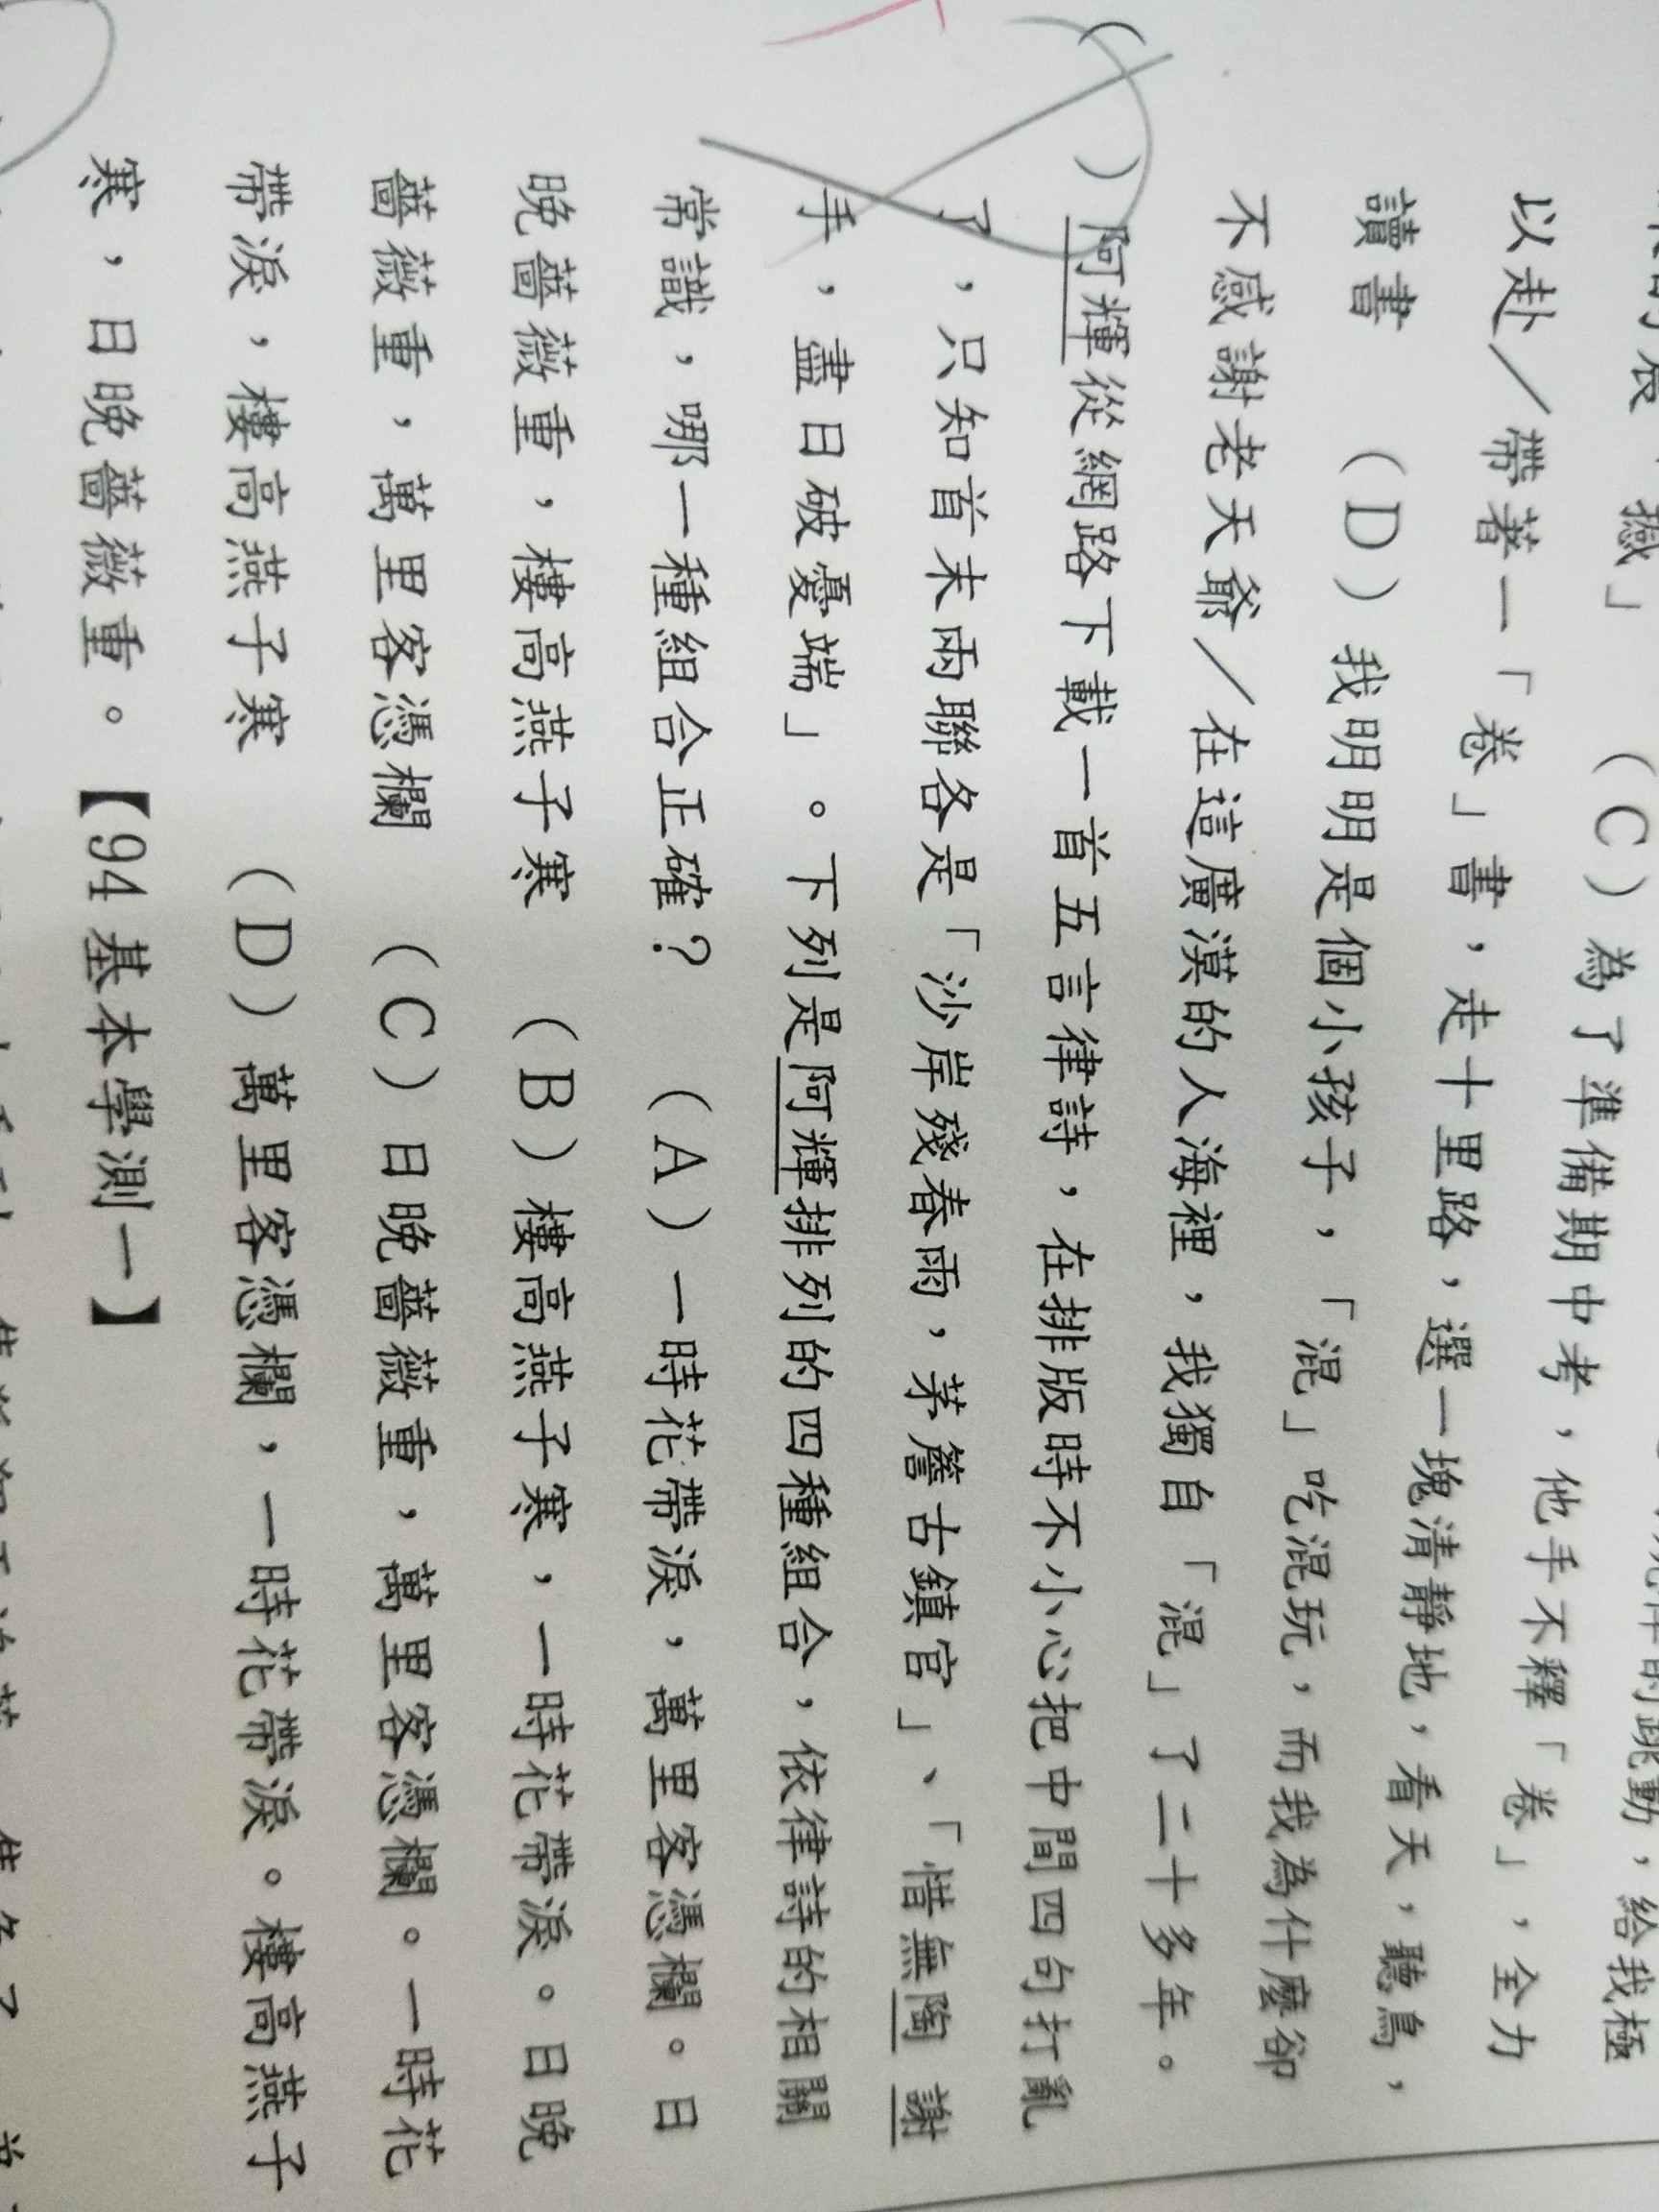 （C）為了準備期中考，他手不釋「卷」，全力
以赴／帶著一「卷」書，走十里路，選一塊清靜地，看天，聽鳥，
讀書　（D）我明明是個小孩子，「混」吃混玩，而我為什麼卻
不感謝老天爺／在這廣漠的人海裡，我獨自「混」了二十多年。
（　）阿輝從網路下載一首五言律詩，在排版時不小心把中間四句打亂
了，只知首末兩聯各是「沙岸殘春雨，茅簷古鎮官」、「惜無陶謝
手，盡日破憂端」。下列是阿輝排列的四種組合，依律詩的相關
常識，哪一種組合正確？　（A）一時花帶淚，萬里客憑欄。日
晚薔薇重，樓高燕子寒　（B）樓高燕子寒，一時花帶淚。日晚
薔薇重，萬里客憑欄　（C）日晚薔薇重，萬里客憑欄。一時花
帶淚，樓高燕子寒　（D）萬里客憑欄，一時花帶淚。樓高燕子
寒，日晚薔薇重。【94基本學測一】